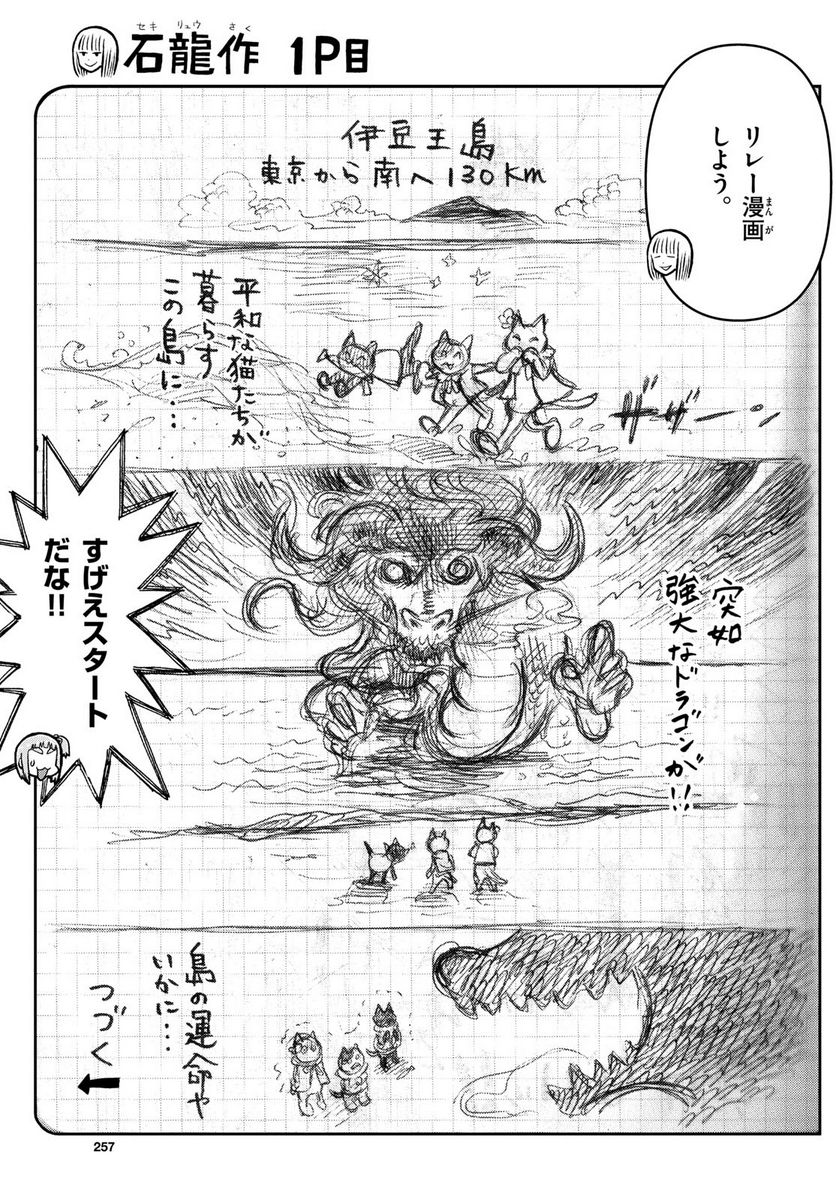 石龍作 1P目
セキ リュウ さく
リレー漫画
まんが
しよう。
伊豆王島
東京から南へ130km
平和な猫たちが
暮らす
この島に…
ザザー…
突如
強大なドラゴンが!!
すげえスタート
だな!!
島の運命や
いかに…
つづく
257